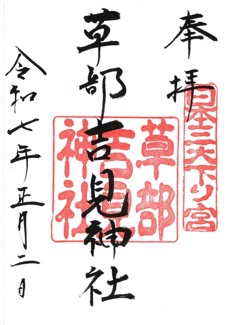 奉拝
日本三大下り宮
草部吉見神社
草部吉見神社
令和七年正月二日